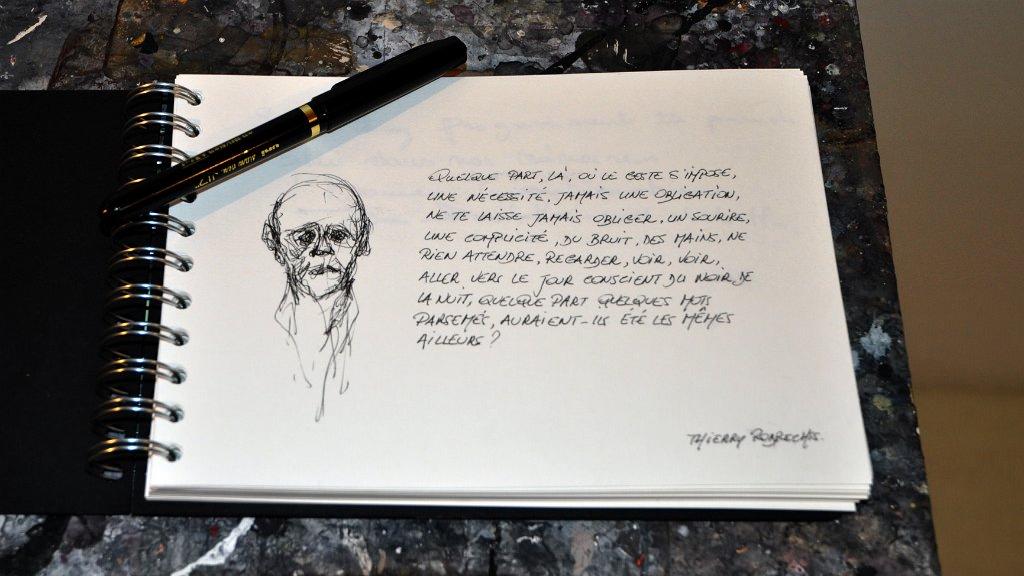 QUELQUE PART, LÀ, OÙ LE GESTE S'IMPOSE,
UNE NÉCESSITÉ, JAMAIS UNE OBLIGATION,
NE TE LAISSE JAMAIS OBLIGER, UN SOURIRE,
UNE COMPLICITÉ, DU BRUIT, DES MAINS, NE
RIEN ATTENDRE, REGARDER, VOIR, VOIR,
ALLER VERS LE JOUR CONSCIENT DU NOIR DE
LA NUIT, QUELQUE PART QUELQUES MOTS
PARSEMÉS, AURAIENT-ILS ÉTÉ LES MÊMES
AILLEURS ?
THIERRY ROBRECHTS.